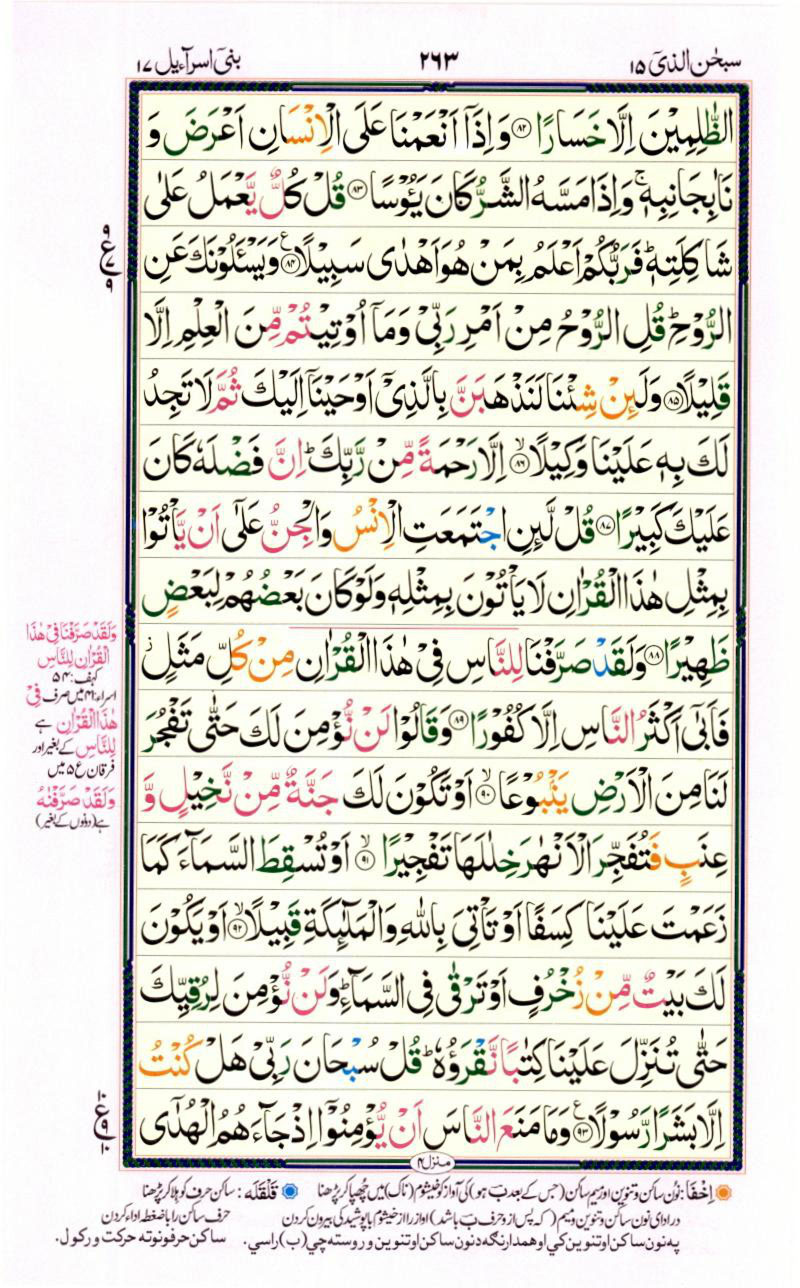 سبحٰن الذیٓ ۱۵
۲۶۳
بنیٓ اسرآءیل ۱۷
الظّٰلِمِیْنَ اِلَّا خَسَارًا ﴿۸۲﴾ وَاِذَاۤ اَنْعَمْنَا عَلَی الْاِنْسَانِ اَعْرَضَ وَ
نَاٰ بِجَانِبِهٖ ۚ وَاِذَا مَسَّهُ الشَّرُّ كَانَ یَـُٔوْسًا ﴿۸۳﴾ قُلْ كُلٌّ یَّعْمَلُ عَلٰی
شَاكِلَتِهٖ ؕ فَرَبُّكُمْ اَعْلَمُ بِمَنْ هُوَ اَهْدٰی سَبِیْلًا ﴿۸۴﴾ ع وَیَسْـَٔلُوْنَكَ عَنِ
الرُّوْحِ ؕ قُلِ الرُّوْحُ مِنْ اَمْرِ رَبِّیْ وَمَاۤ اُوْتِیْتُمْ مِّنَ الْعِلْمِ اِلَّا
قَلِیْلًا ﴿۸۵﴾ وَلَىِٕنْ شِئْنَا لَنَذْهَبَنَّ بِالَّذِیْۤ اَوْحَیْنَاۤ اِلَیْكَ ثُمَّ لَا تَجِدُ
لَكَ بِهٖ عَلَیْنَا وَكِیْلًا ﴿۸۶﴾ ۙ اِلَّا رَحْمَةً مِّنْ رَّبِّكَ ؕ اِنَّ فَضْلَهٗ كَانَ
عَلَیْكَ كَبِیْرًا ﴿۸۷﴾ قُلْ لَّىِٕنِ اجْتَمَعَتِ الْاِنْسُ وَالْجِنُّ عَلٰۤی اَنْ یَّاْتُوْا
بِمِثْلِ هٰذَا الْقُرْاٰنِ لَا یَاْتُوْنَ بِمِثْلِهٖ وَلَوْ كَانَ بَعْضُهُمْ لِبَعْضٍ
ظَهِیْرًا ﴿۸۸﴾ وَلَقَدْ صَرَّفْنَا لِلنَّاسِ فِیْ هٰذَا الْقُرْاٰنِ مِنْ كُلِّ مَثَلٍ ؗ
فَاَبٰۤی اَكْثَرُ النَّاسِ اِلَّا كُفُوْرًا ﴿۸۹﴾ وَقَالُوْا لَنْ نُّؤْمِنَ لَكَ حَتّٰی تَفْجُرَ
لَنَا مِنَ الْاَرْضِ یَنْۢبُوْعًا ﴿۹۰﴾ ۙ اَوْ تَكُوْنَ لَكَ جَنَّةٌ مِّنْ نَّخِیْلٍ وَّ
عِنَبٍ فَتُفَجِّرَ الْاَنْهٰرَ خِلٰلَهَا تَفْجِیْرًا ﴿۹۱﴾ ۙ اَوْ تُسْقِطَ السَّمَآءَ كَمَا
زَعَمْتَ عَلَیْنَا كِسَفًا اَوْ تَاْتِیَ بِاللّٰهِ وَالْمَلٰٓىِٕكَةِ قَبِیْلًا ﴿۹۲﴾ ۙ اَوْ یَكُوْنَ
لَكَ بَیْتٌ مِّنْ زُخْرُفٍ اَوْ تَرْقٰی فِی السَّمَآءِ ؕ وَلَنْ نُّؤْمِنَ لِرُقِیِّكَ
حَتّٰی تُنَزِّلَ عَلَیْنَا كِتٰبًا نَّقْرَؤُهٗ ؕ قُلْ سُبْحَانَ رَبِّیْ هَلْ كُنْتُ
اِلَّا بَشَرًا رَّسُوْلًا ﴿۹۳﴾ ع وَمَا مَنَعَ النَّاسَ اَنْ یُّؤْمِنُوْۤا اِذْ جَآءَهُمُ الْهُدٰۤی
منزل ۴
۹
ع
۹
وَلَقَدْ صَرَّفْنَا فِیْ هٰذَا
الْقُرْاٰنِ لِلنَّاسِ
کہف: ۵۴
اسراء: ۴۱ میں صرف فِیْ
هٰذَا الْقُرْاٰنِ ہے
لِلنَّاسِ کے بغیر اور
فرقان ع ۵ میں
وَلَقَدْ صَرَّفْنٰهُ
ہے (دونوں کے بغیر)
۱۰
ع
۱۰
اِخْفَا: نون ساکن و تنوین اور میم ساکن (جس کے بعد ب ہو) کی آواز کو خیشوم (ناک) میں چھپا کر پڑھنا
قَلْقَلَه: ساکن حرف کو ہلا کر پڑھنا
در ادای نون ساکن و تنوین و میم (که پس از و حرف ب باشد) آواز را از خیشوم با پوشیدگی بیرون کردن
حرف ساکن را باضغط ادا کردن
په نون ساکن او تنوین کي او همدارنګه د نون ساکن او تنوین وروسته چي (ب) راسي.
ساکن حرفونو ته حرکت ورکول.